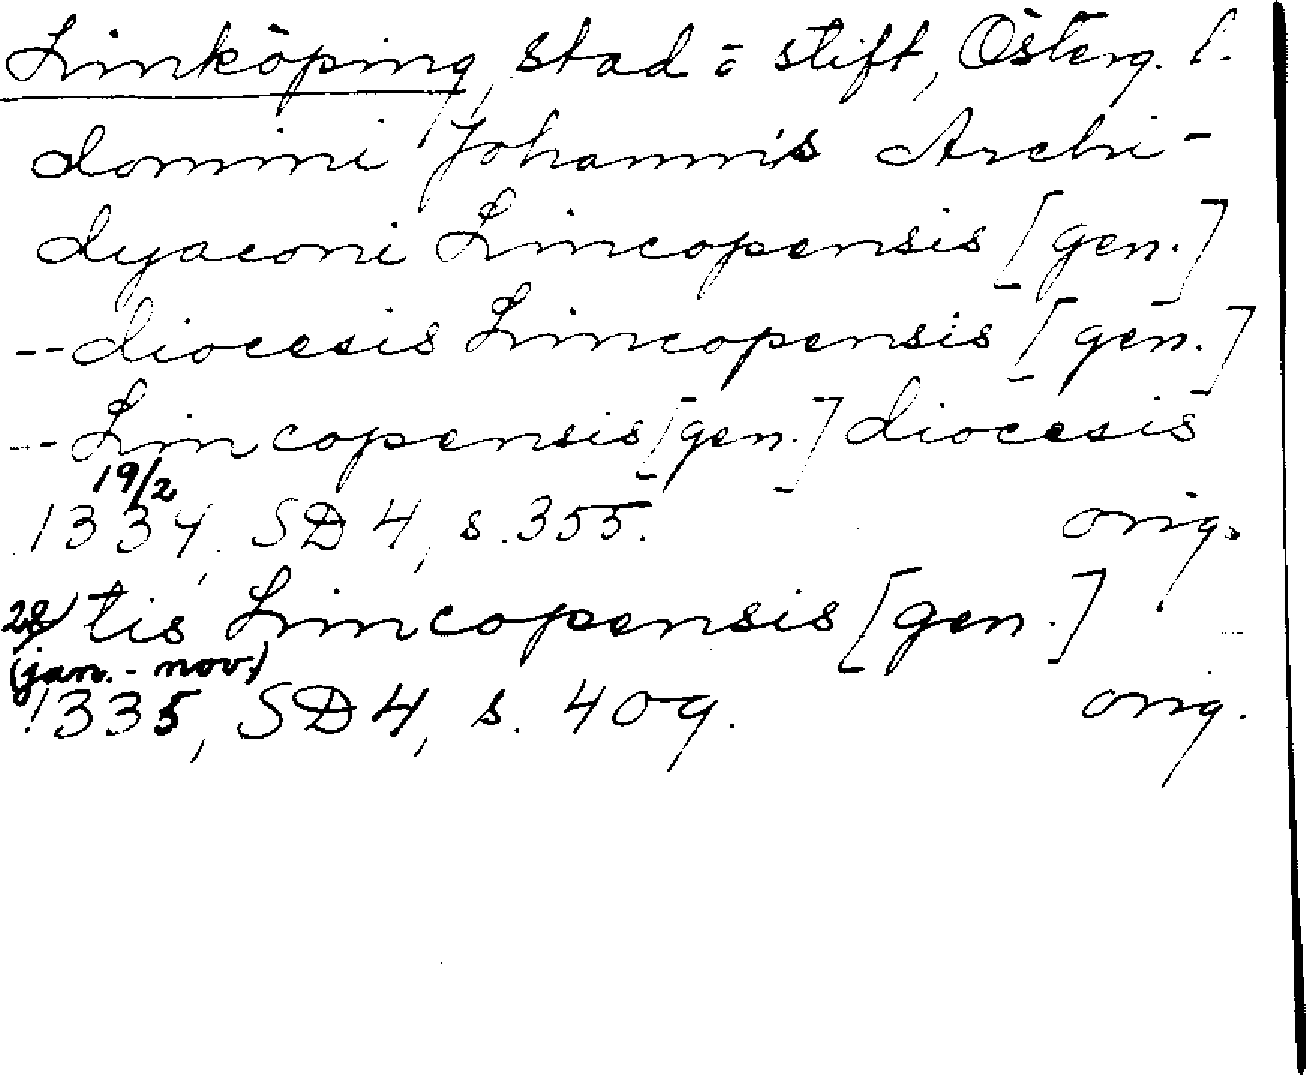 Linköping, stad o stift, Österg. l.
domini Johannis Archi-
dyaconi Lincopensis [gen.]
-- diocesis Lincopensis [gen.]
-- Lincopensis [gen.] diocesis
19/2
1334, SD 4, s. 355. orig.
tis Lincopensis [gen.]
(jan. - nov.)
1335, SD 4, s. 409. orig.